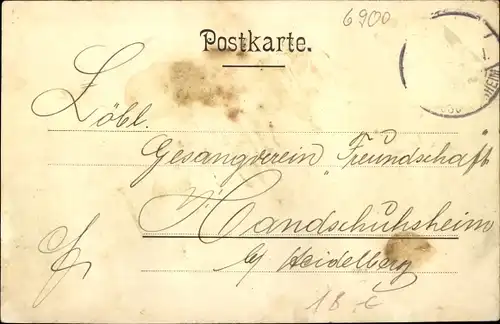 6900
Postkarte.
Löbl.
Gesangverein "Freundschaft"
Handschuhsheim
b/ Heidelberg